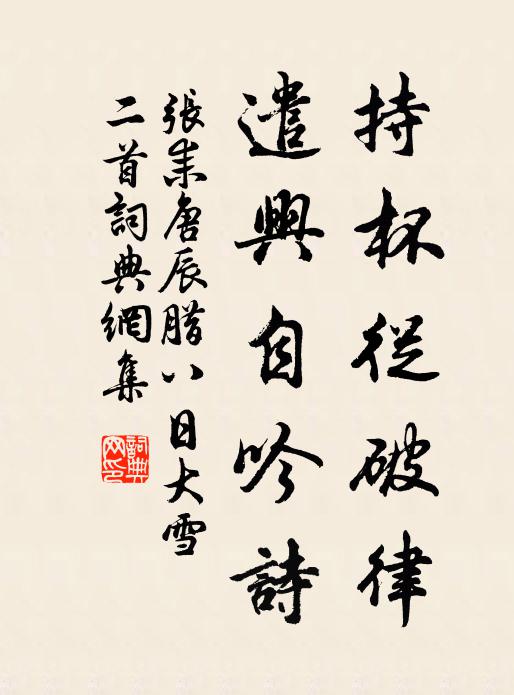 持杯從破律
遣興自吟詩
張耒庚辰腊八日大雪
二首詞典網集
詞典网印